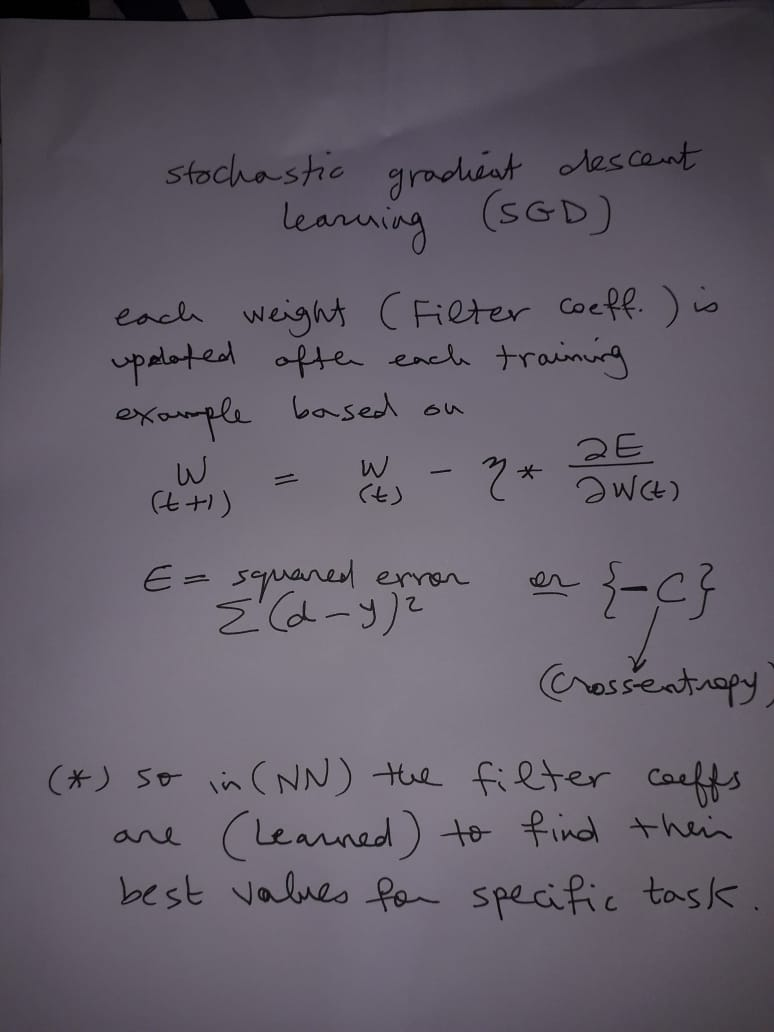 stochastic gradient descent
learning (SGD)
each weight (Filter coeff.) is
updated after each training
example based on
W(t+1) = W(t) - η * ∂E/∂W(t)
E = squared error or {-C}
Σ(d-y)²
(Cross-entropy)
(*) so in (NN) the filter coeffs
are (Learned) to find their
best values for specific task.